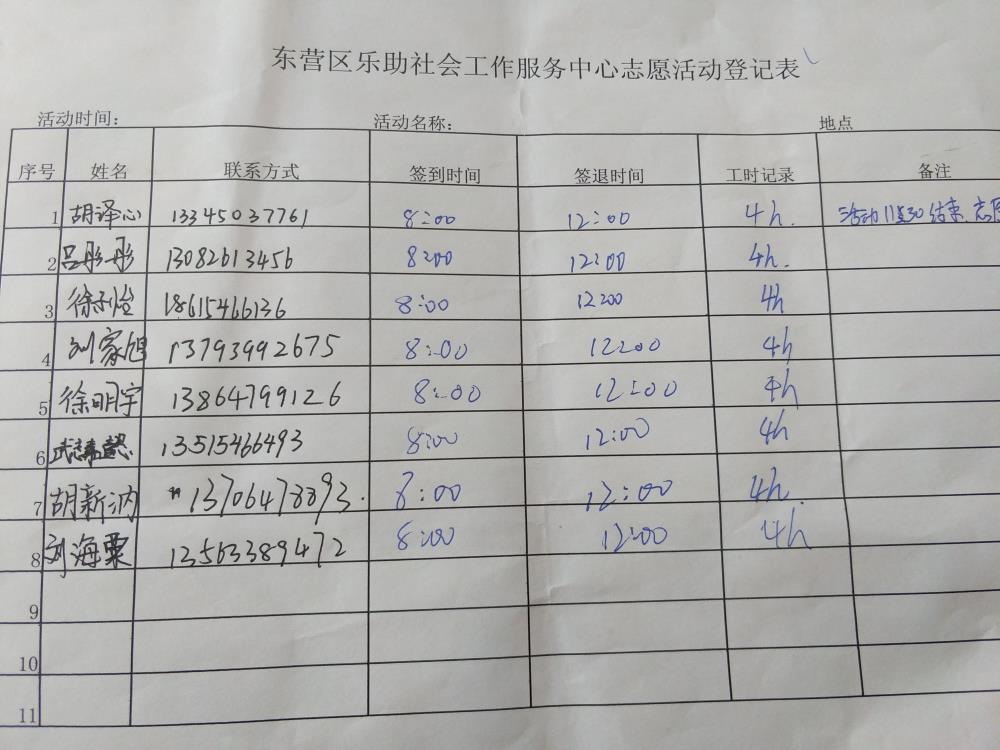 东营区乐助社会工作服务中心志愿活动登记表
活动时间： 活动名称： 地点
序号 姓名 联系方式 签到时间 签退时间 工时记录 备注
1 胡译心 13345037761 8:00 12:00 4h. 活动11:30结束，志愿
2 吕彤彤 13082613456 8:00 12:00 4h.
3 徐利怡 18615466136 8:00 12:00 4h
4 刘家旭 13793992675 8:00 12:00 4h
5 徐明宇 13864799126 8:00 12:00 4h
6 13515466493 8:00 12:00 4h
7 胡新汭 13706478893. 8:00 12:00 4h.
8 刘海粟 13563389472 8:00 12:00 4h
9
10
11